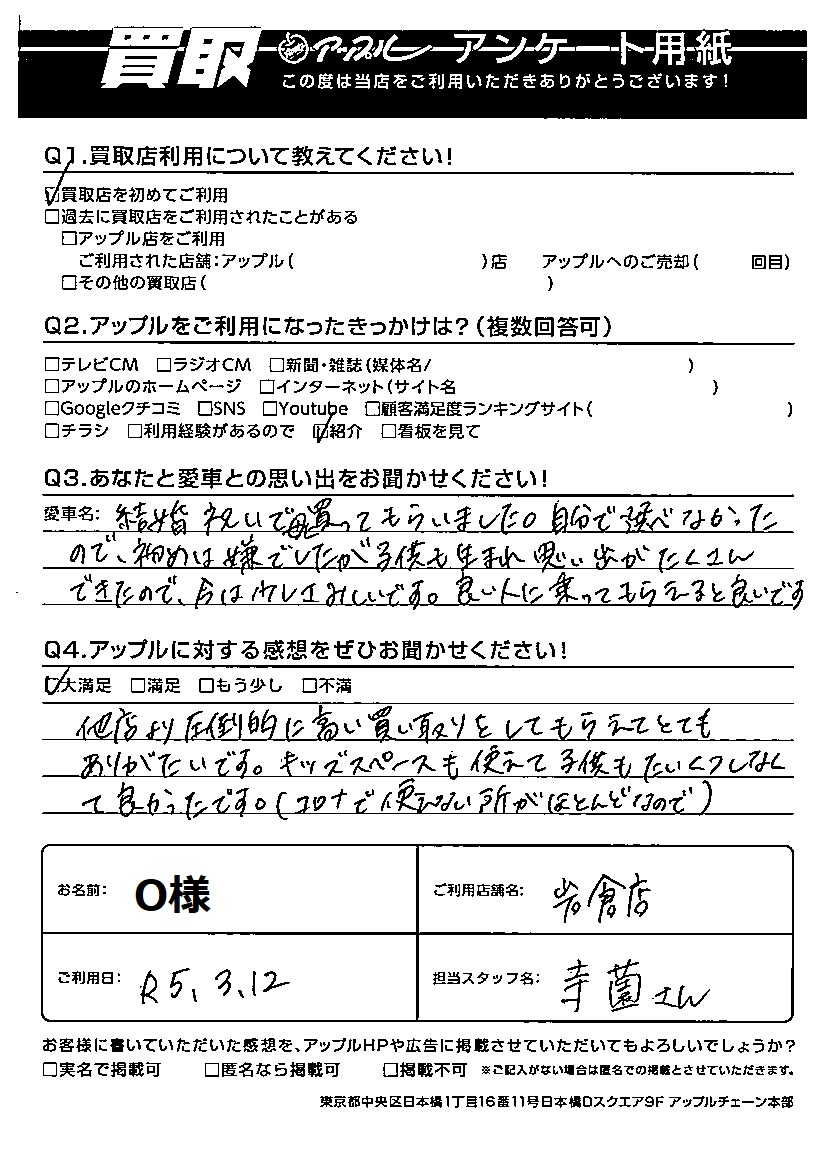 買取 アップル アンケート用紙
この度は当店をご利用いただきありがとうございます!
Q1.買取店利用について教えてください!
☑買取店を初めてご利用
□過去に買取店をご利用されたことがある
□アップル店をご利用
ご利用された店舗:アップル( )店 アップルへのご売却( 回目)
□その他の買取店( )
Q2.アップルをご利用になったきっかけは?(複数回答可)
□テレビCM □ラジオCM □新聞・雑誌(媒体名/ )
□アップルのホームページ □インターネット(サイト名 )
□Googleクチコミ □SNS □Youtube □顧客満足度ランキングサイト( )
□チラシ □利用経験があるので ☑紹介 □看板を見て
Q3.あなたと愛車との思い出をお聞かせください!
愛車名: 結婚祝いで買ってもらいました。自分で選べなかった
ので、初めは嫌でしたが子供も生まれ思い出がたくさん
できたので、今はウレさみしいです。良い人に乗ってもらえると良いです
Q4.アップルに対する感想をぜひお聞かせください!
☑大満足 □満足 □もう少し □不満
他店より圧倒的に高い買い取りをしてもらえてとても
ありがたいです。キッズスペースも使えて子供もたいくつしなく
て良かったです。(コロナで使えない所がほとんどなので)
お名前: O様 ご利用店舗名: 岩倉店
ご利用日: R5、3、12 担当スタッフ名: 寺薗さん
お客様に書いていただいた感想を、アップルHPや広告に掲載させていただいてもよろしいでしょうか?
□実名で掲載可 □匿名なら掲載可 □掲載不可 ※ご記入がない場合は匿名での掲載とさせていただきます。
東京都中央区日本橋1丁目16番11号日本橋Dスクエア9F アップルチェーン本部